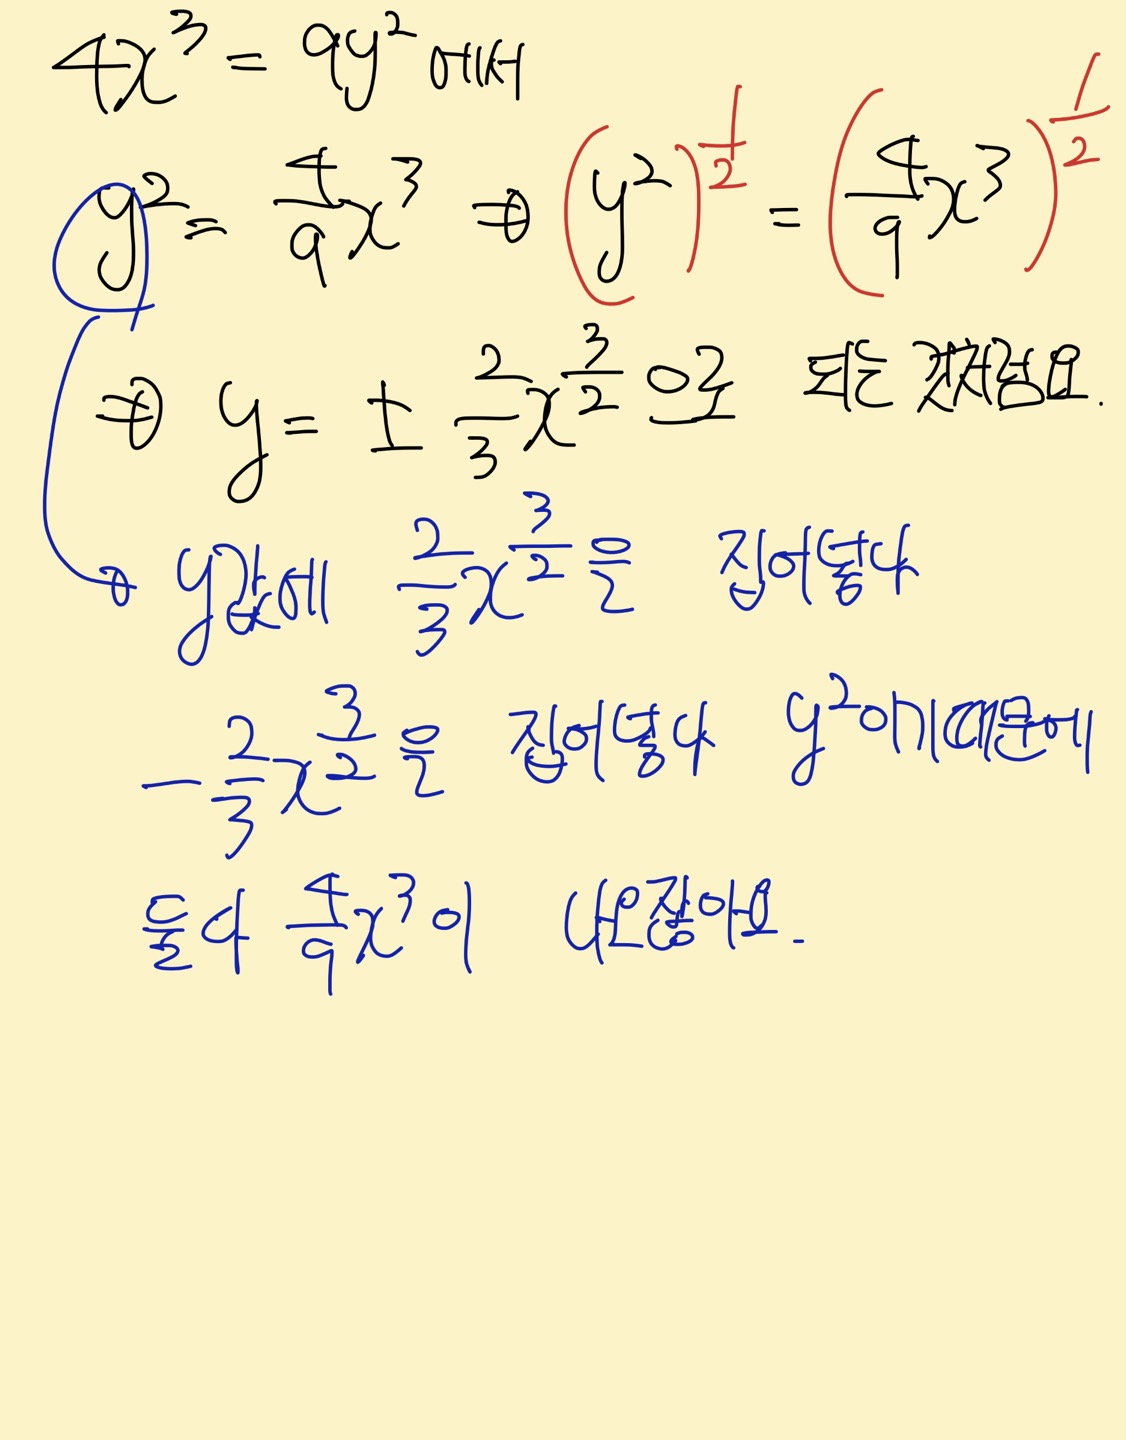 4x³ = 9y² 에서
y² = 4/9 x³ ⇒ (y²)^(1/2) = (4/9 x³)^(1/2)
⇒ y = ± 2/3 x^(3/2) 으로 되는 것처럼요.
→ y값에 2/3 x^(3/2) 을 집어넣나
- 2/3 x^(3/2) 을 집어넣나 y²이기때문에
둘다 4/9 x³이 나오잖아요.